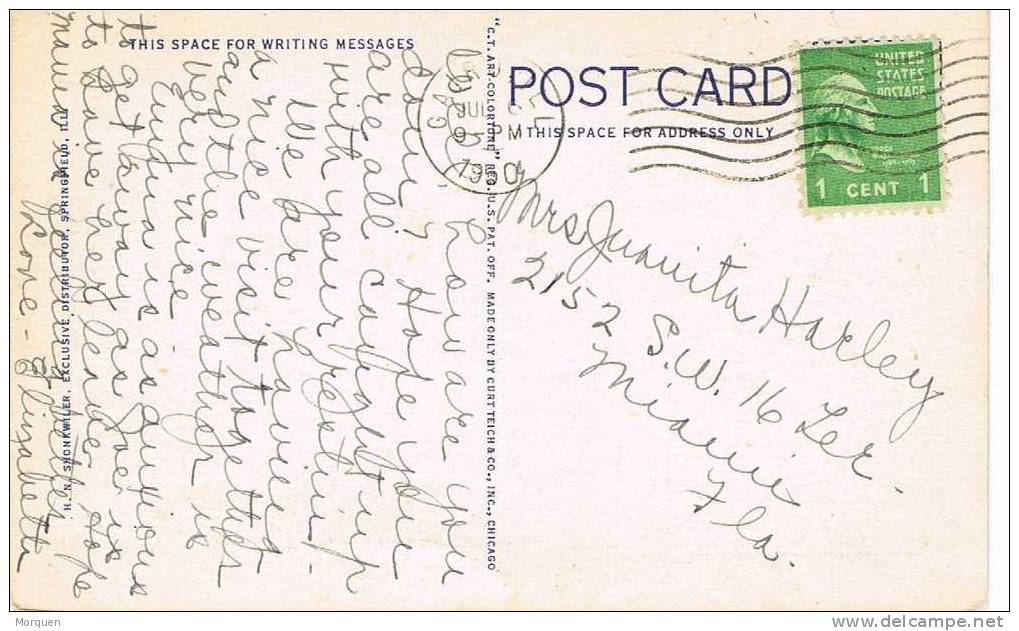 THIS SPACE FOR WRITING MESSAGES
"C.T. ART-COLORTONE" REG. U.S. PAT. OFF. MADE ONLY BY CURT TEICH & CO., INC., CHICAGO
H. N. SHONKWILER, EXCLUSIVE DISTRIBUTOR, SPRINGFIELD, ILL.
How are you
doing I Hope you
are all caught up
with your resting.
We are having
a nice visit together
and the weather is
very nice.
is as anxious
to get away as is
to have her leave. Hope
is feeling better
Love - Elizabeth
POST CARD
THIS SPACE FOR ADDRESS ONLY
UNITED
STATES
POSTAGE
1 CENT 1
Mrs Juanita Harley
2152 S.W. 16 Ter.
Miami
Fla.
Morquen
www.delcampe.net